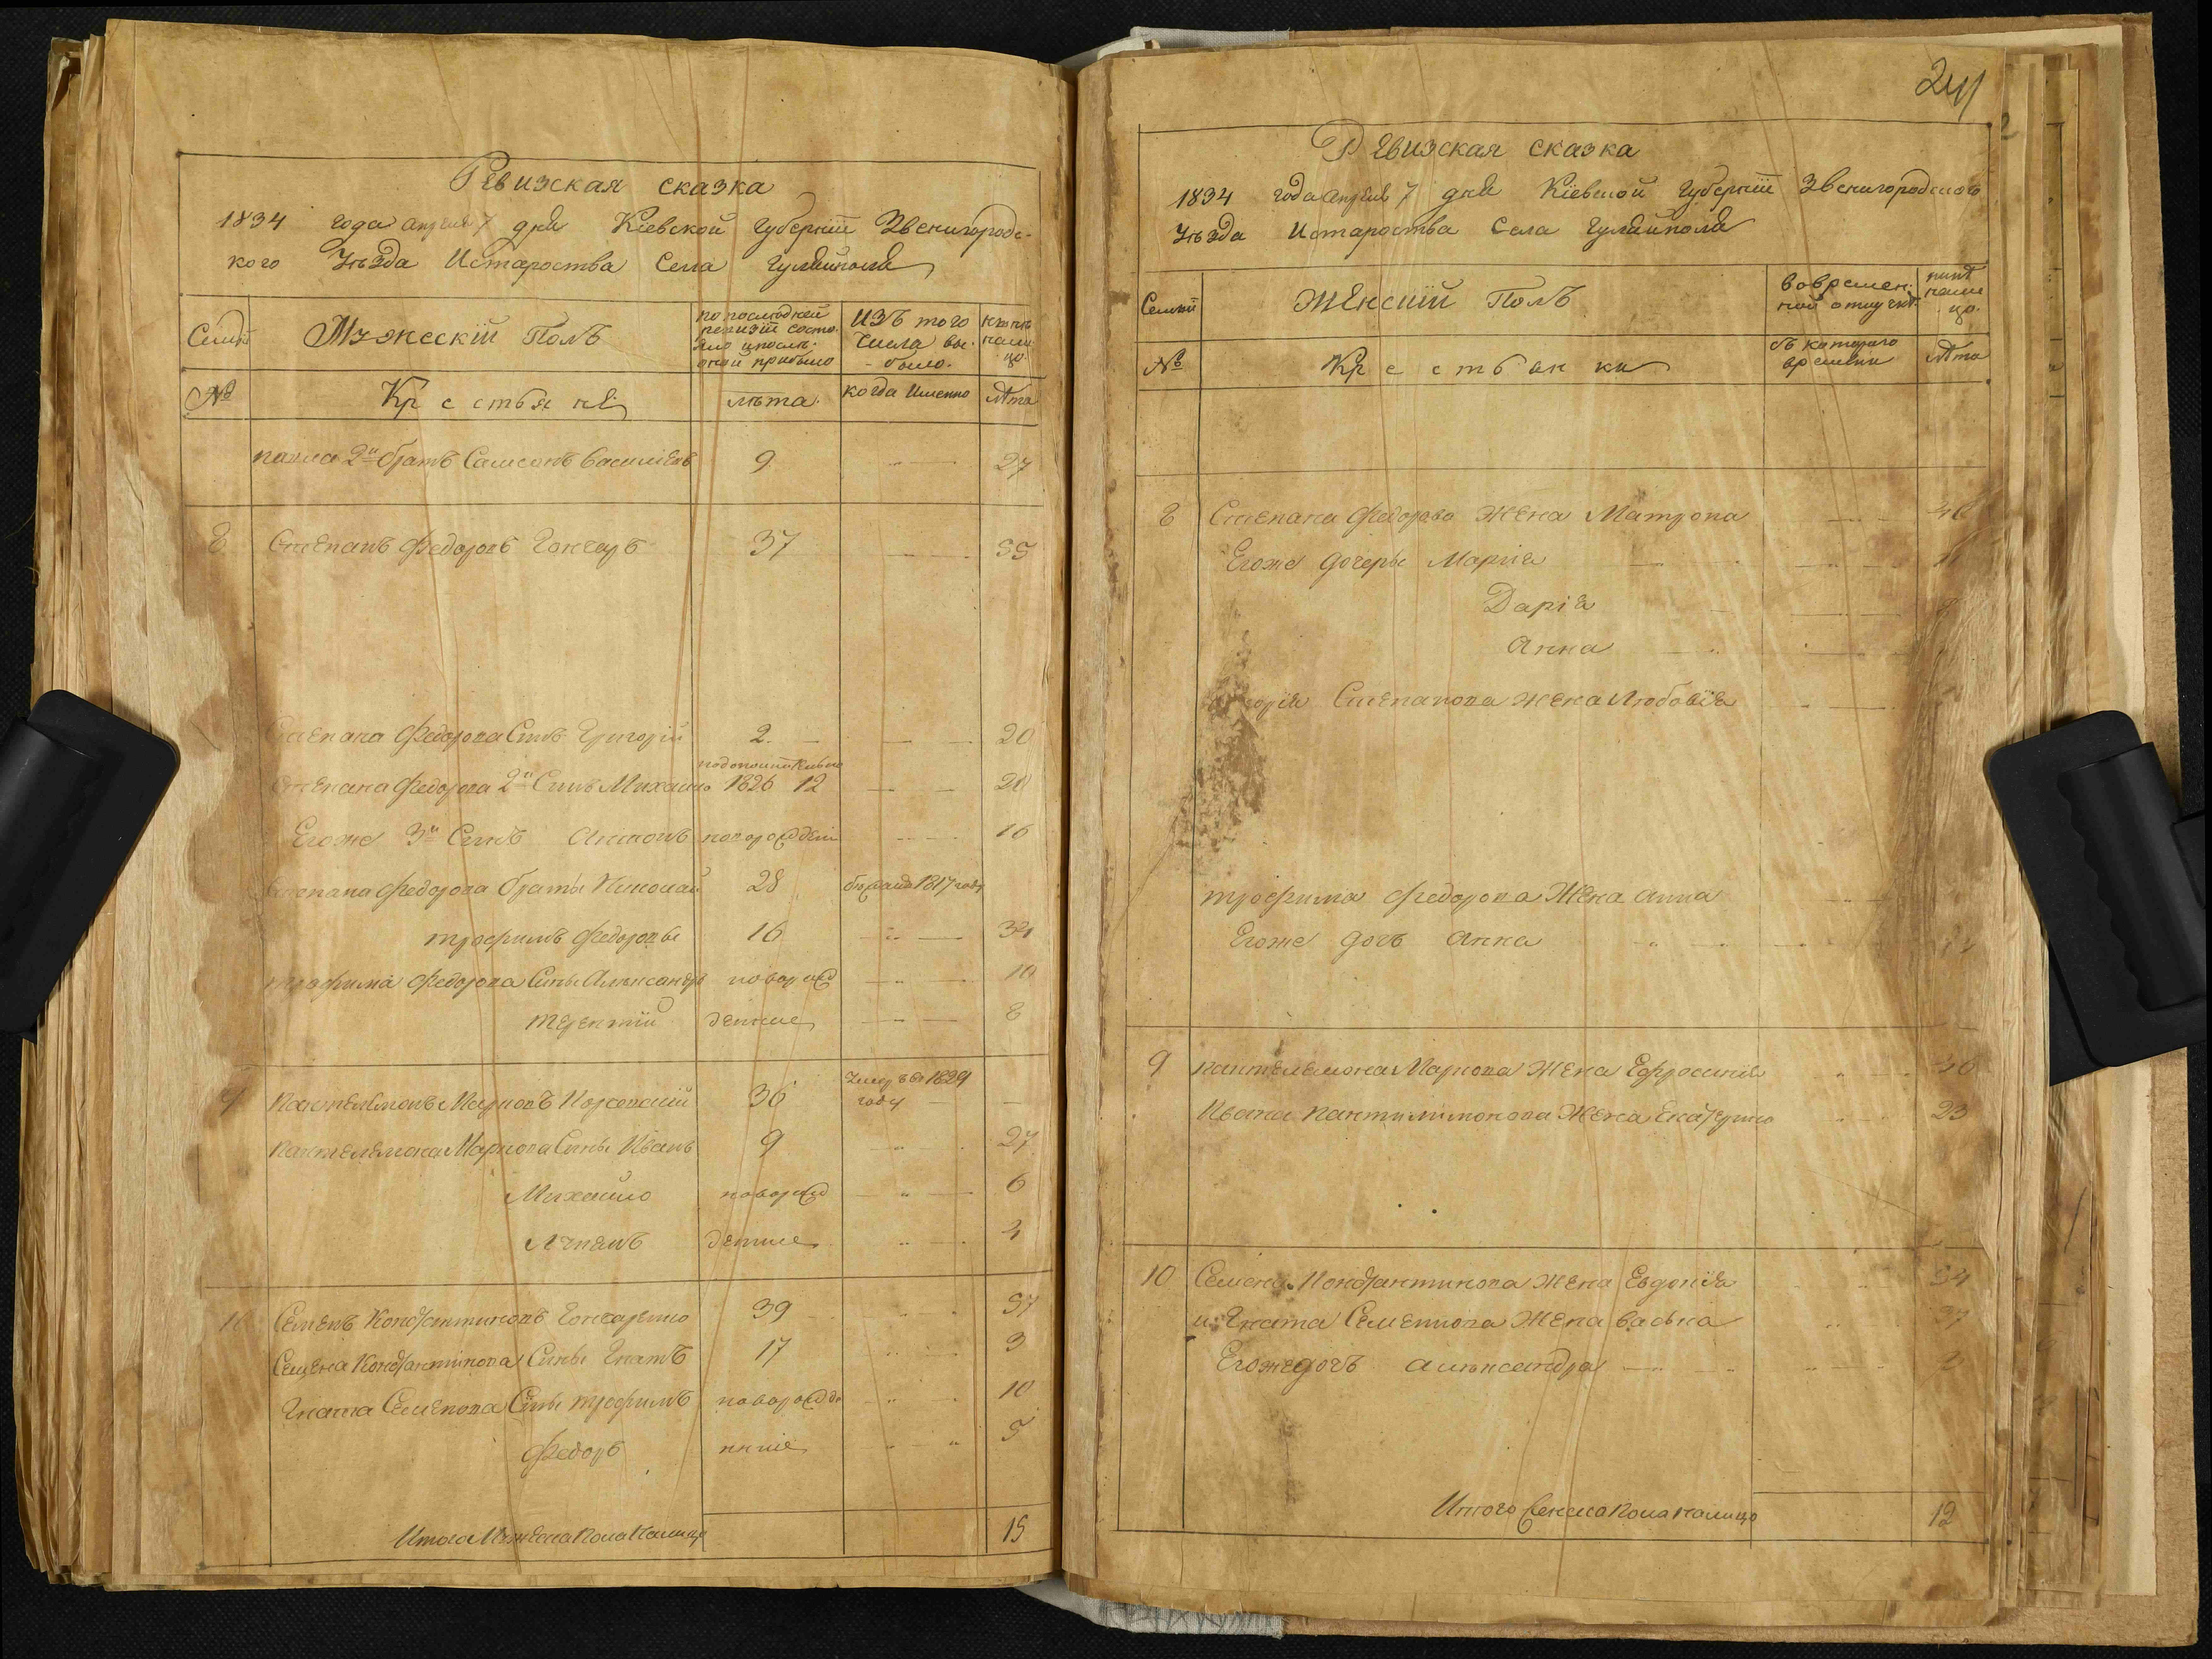 Ревизская сказка
1834 года апреля 7 дня Кіевской Губерніи Звенигородс-
кого Уѣзда Истароства Села Гуляйполя
Семьи
Мужескій Полъ
по последней
ревизіи состо-
яло ипосль-
оной прибыло
Изъ того
Числа вы-
было.
ныне
нали-
цо.
№
Крестьяне
лѣта.
когда Именно
лѣта
павла 2й братъ Самсонъ Василіевъ 9 27
8 Степанъ Федоровъ Гончаръ 37 55
Степана Федорова Сынъ Григорій 2. 20
Степана Федорова 2й Сынъ Михайло 1826 12 20
Егоже 3й Сынъ Антонъ новорожден 16
Степана Федорова Братья Николай 28 1817 году
трофимъ Федоровы 16
трофима Федорова Сины Александръ новорож 10
терентій денные 8
9 Пантелемонъ Марковъ 36 Умеръ въ 1829 году
пантелемона Маркова Сины Иванъ 9 27
Михайло новорож 6
денные
10 Семенъ Констянтиновъ Гончаренко 39 57
Семена Констянтинова Сины Гнатъ 17 3
Гната Семенова Сины трофимъ новорожде 10
Федоръ нніе 5
Итого Мужеска Пола Налицо 15
241
Ревизская сказка
1834 года апреля 7 дня Кіевской Губерніи Звенигородского
Уѣзда Истароства Села Гуляйполя
Семьи
Женскій Полъ
вовремен-
ной отлучке
ныне
нали-
цо.
№
Крестьянки
съ которого
времени
лѣта
8 Степана Федорова Жена Матрона
Егоже дочеры Марія
Дарія
Анна
Степанова Жена Любовія
трофима Федорова Жена Анна
Егоже дочъ Анна
9 пантелемона Маркова Жена Ефросинія
Ивана пантилимонова Жена Екатерина 23
10 Семена Констянтинова Жена Евдокія 54
и Гната Семенова Жена васьна 37
Егоже дочъ Александра
Итого женска Пола налицо 12